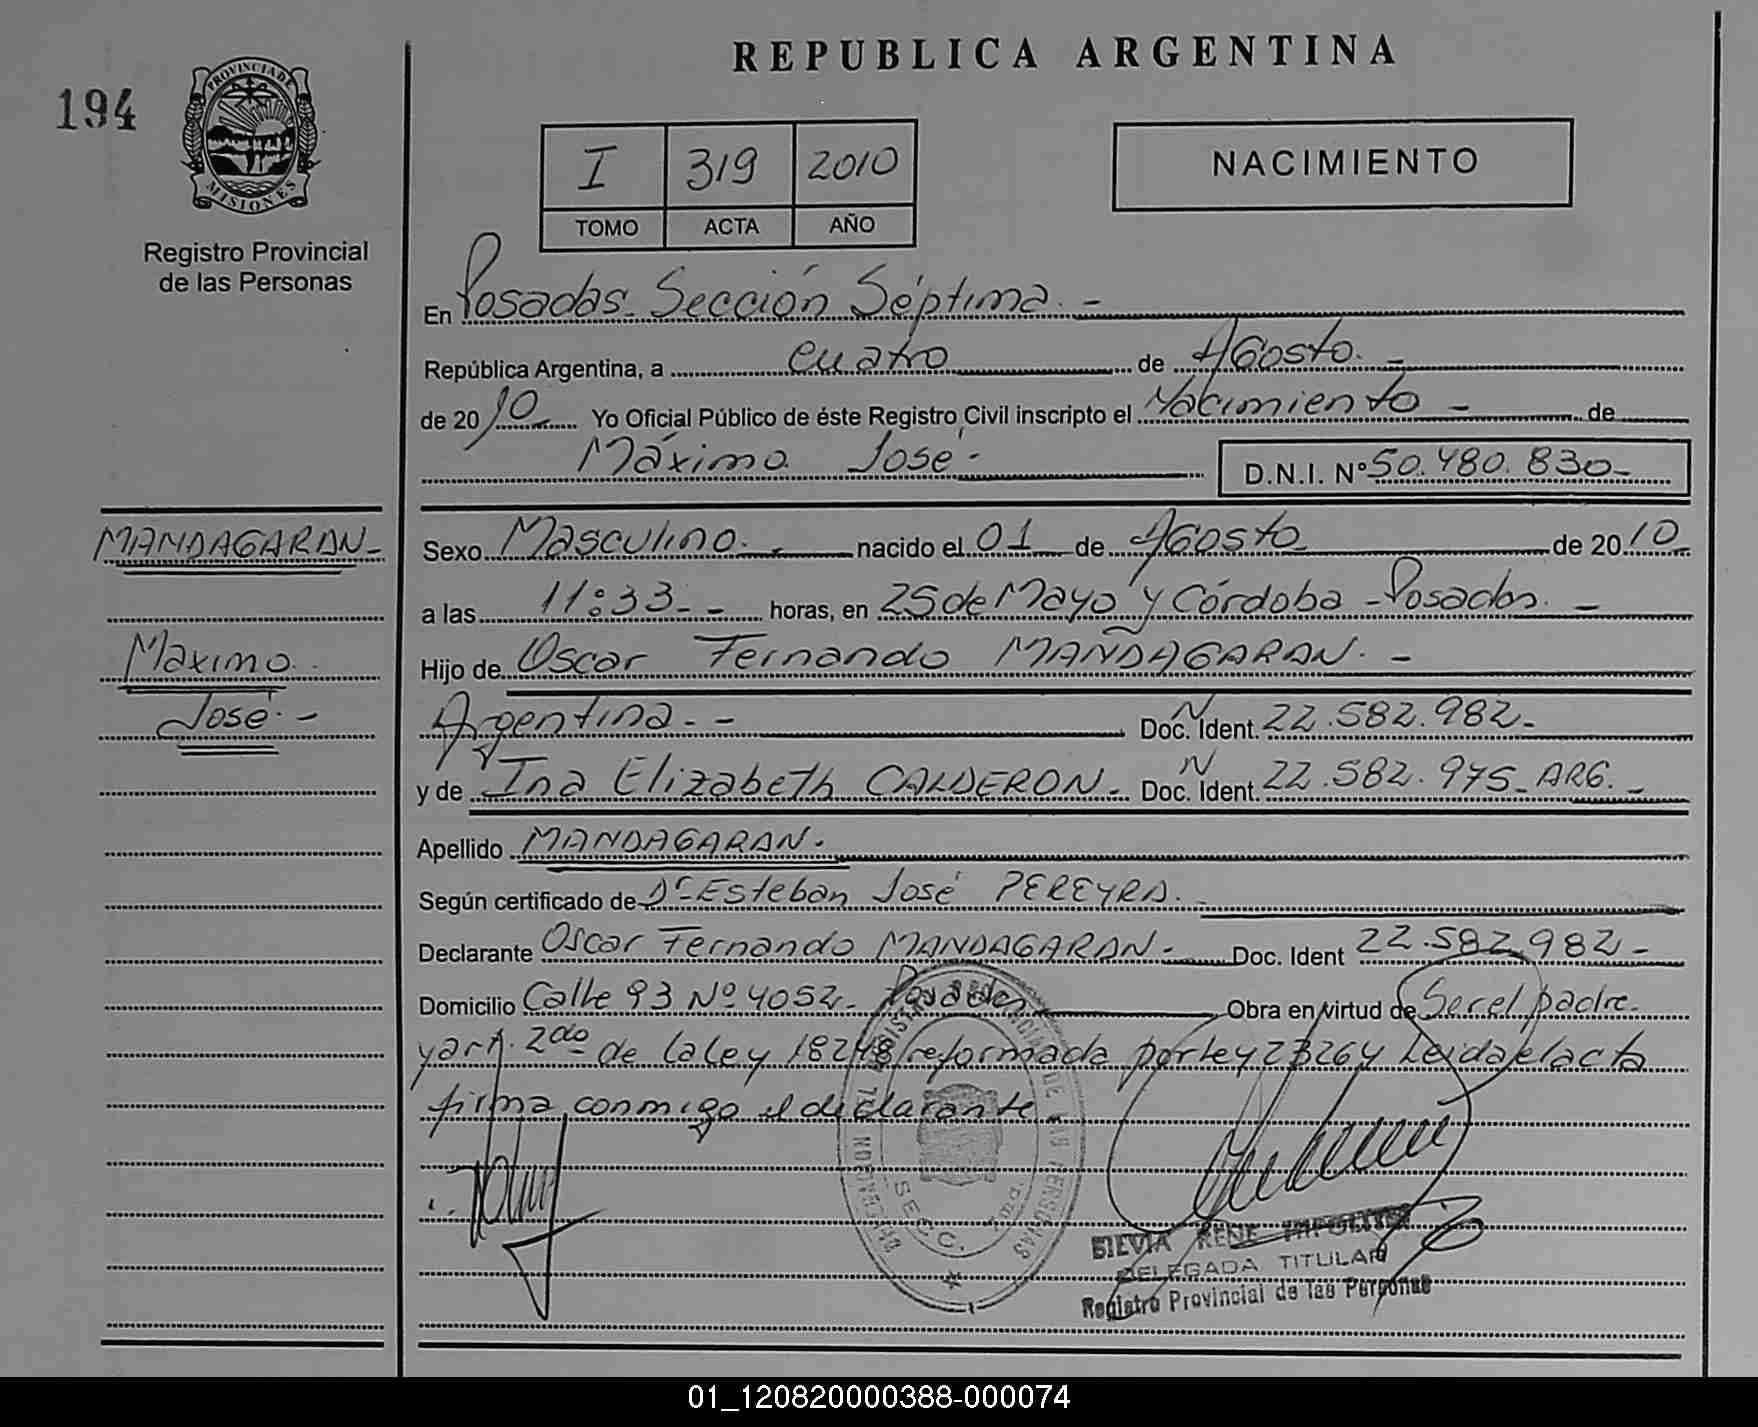 REPUBLICA ARGENTINA
194
PROVINCIA DE
MISIONES
Registro Provincial
de las Personas
I 319 2010
TOMO ACTA AÑO
NACIMIENTO
En Posadas Sección Séptima.-
República Argentina, a cuatro de Agosto.-
de 2010 Yo Oficial Público de éste Registro Civil inscripto el Nacimiento - de
Máximo José.- D.N.I. Nº 50.480.830-
MANDAGARAN-
Máximo
José.-
Sexo Masculino.- nacido el 01 de Agosto de 2010
a las 11:33-- horas, en 25 de Mayo y Córdoba - Posadas.-
Hijo de Oscar Fernando MANDAGARAN.-
Argentina.-- Doc. N Ident. 22.582.982-
y de Ina Elizabeth CALDERON.- Doc. N Ident. 22.582.975- ARG.-
Apellido MANDAGARAN.-
Según certificado de Dr Esteban José PEREYRA.-
Declarante Oscar Fernando MANDAGARAN.- Doc. Ident 22.582.982-
Domicilio Calle 93 Nº 4052- Posadas Obra en virtud de Ser el padre.
y art. 2do de la ley 18248 reformada por ley 23264 Leida el acta
firma conmigo el declarante
SECC. 7ma.
SILVIA RENE
DELEGADA TITULAR
Registro Provincial de las Personas
01_120820000388-000074